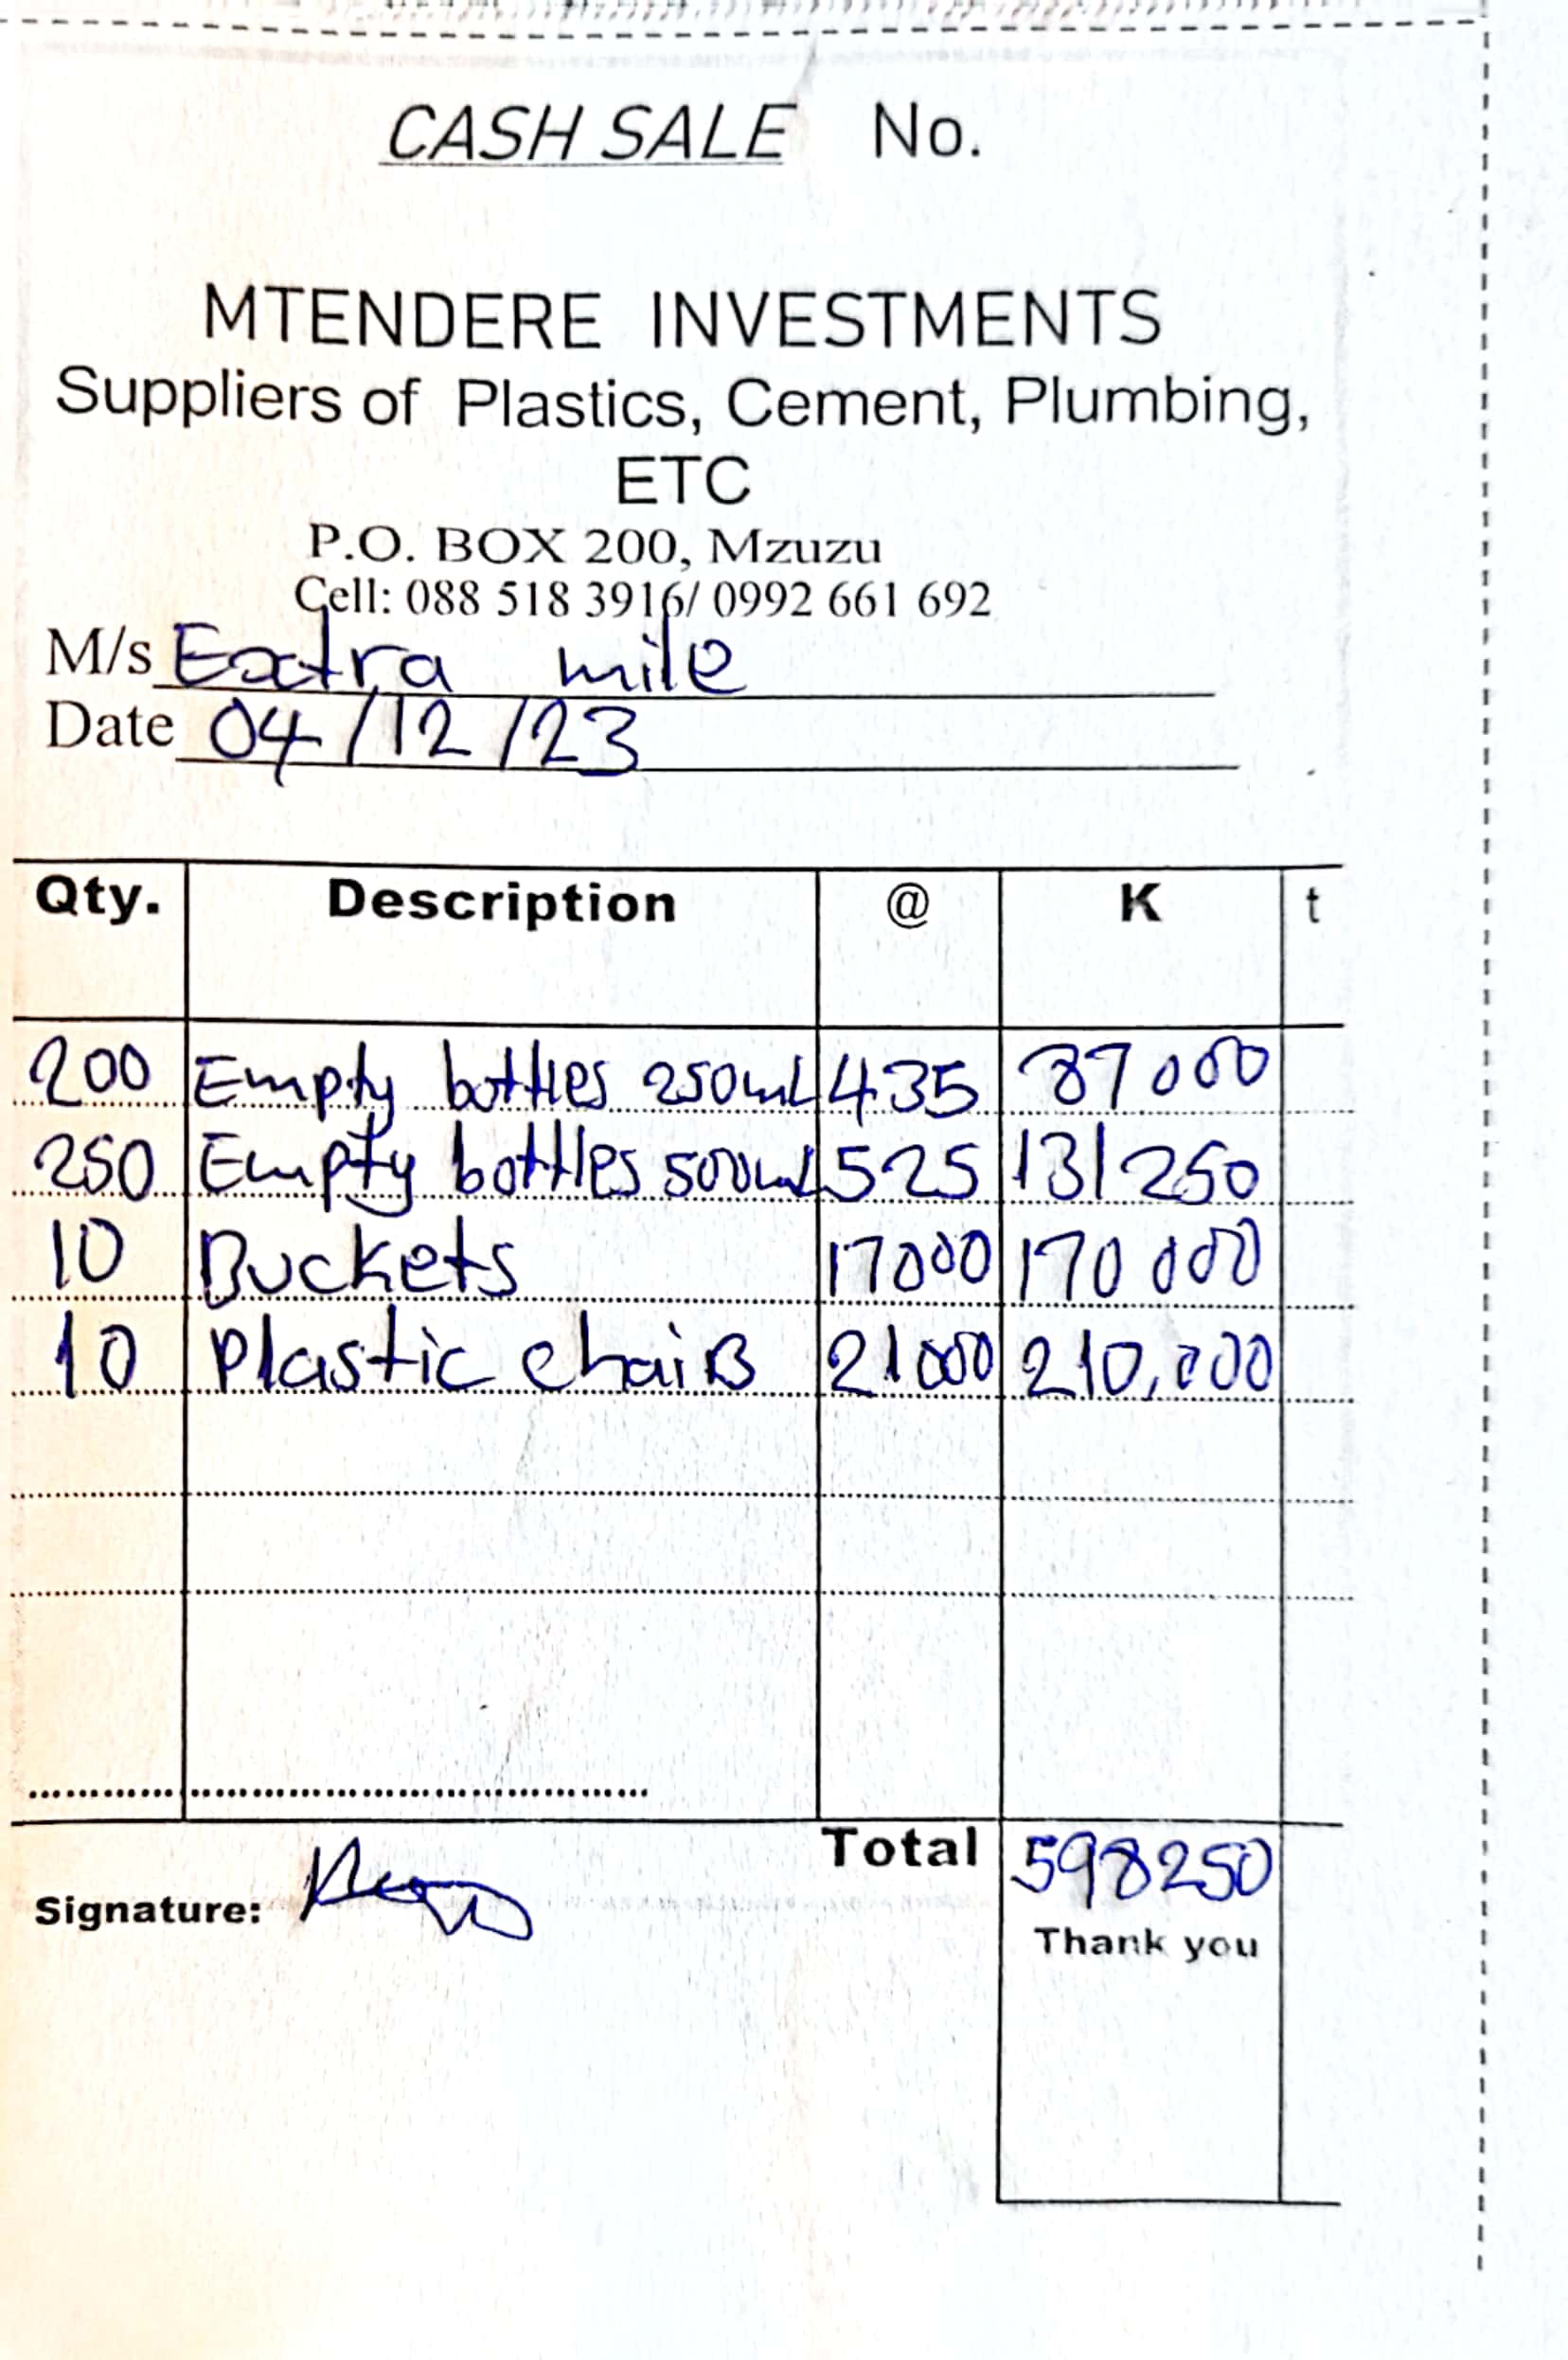 CASH SALE No.
MTENDERE INVESTMENTS
Suppliers of Plastics, Cement, Plumbing,
ETC
P.O. BOX 200, Mzuzu
Cell: 088 518 3916/ 0992 661 692
M/s Extra mile
Date 04/12/23
Qty. Description @ K t
200 Empty bottles 250mL 435 87000
250 Empty bottles 500mL 525 131250
10 Buckets 17000 170000
10 Plastic chairs 21000 210,000
Total 598250
Signature:
Thank you